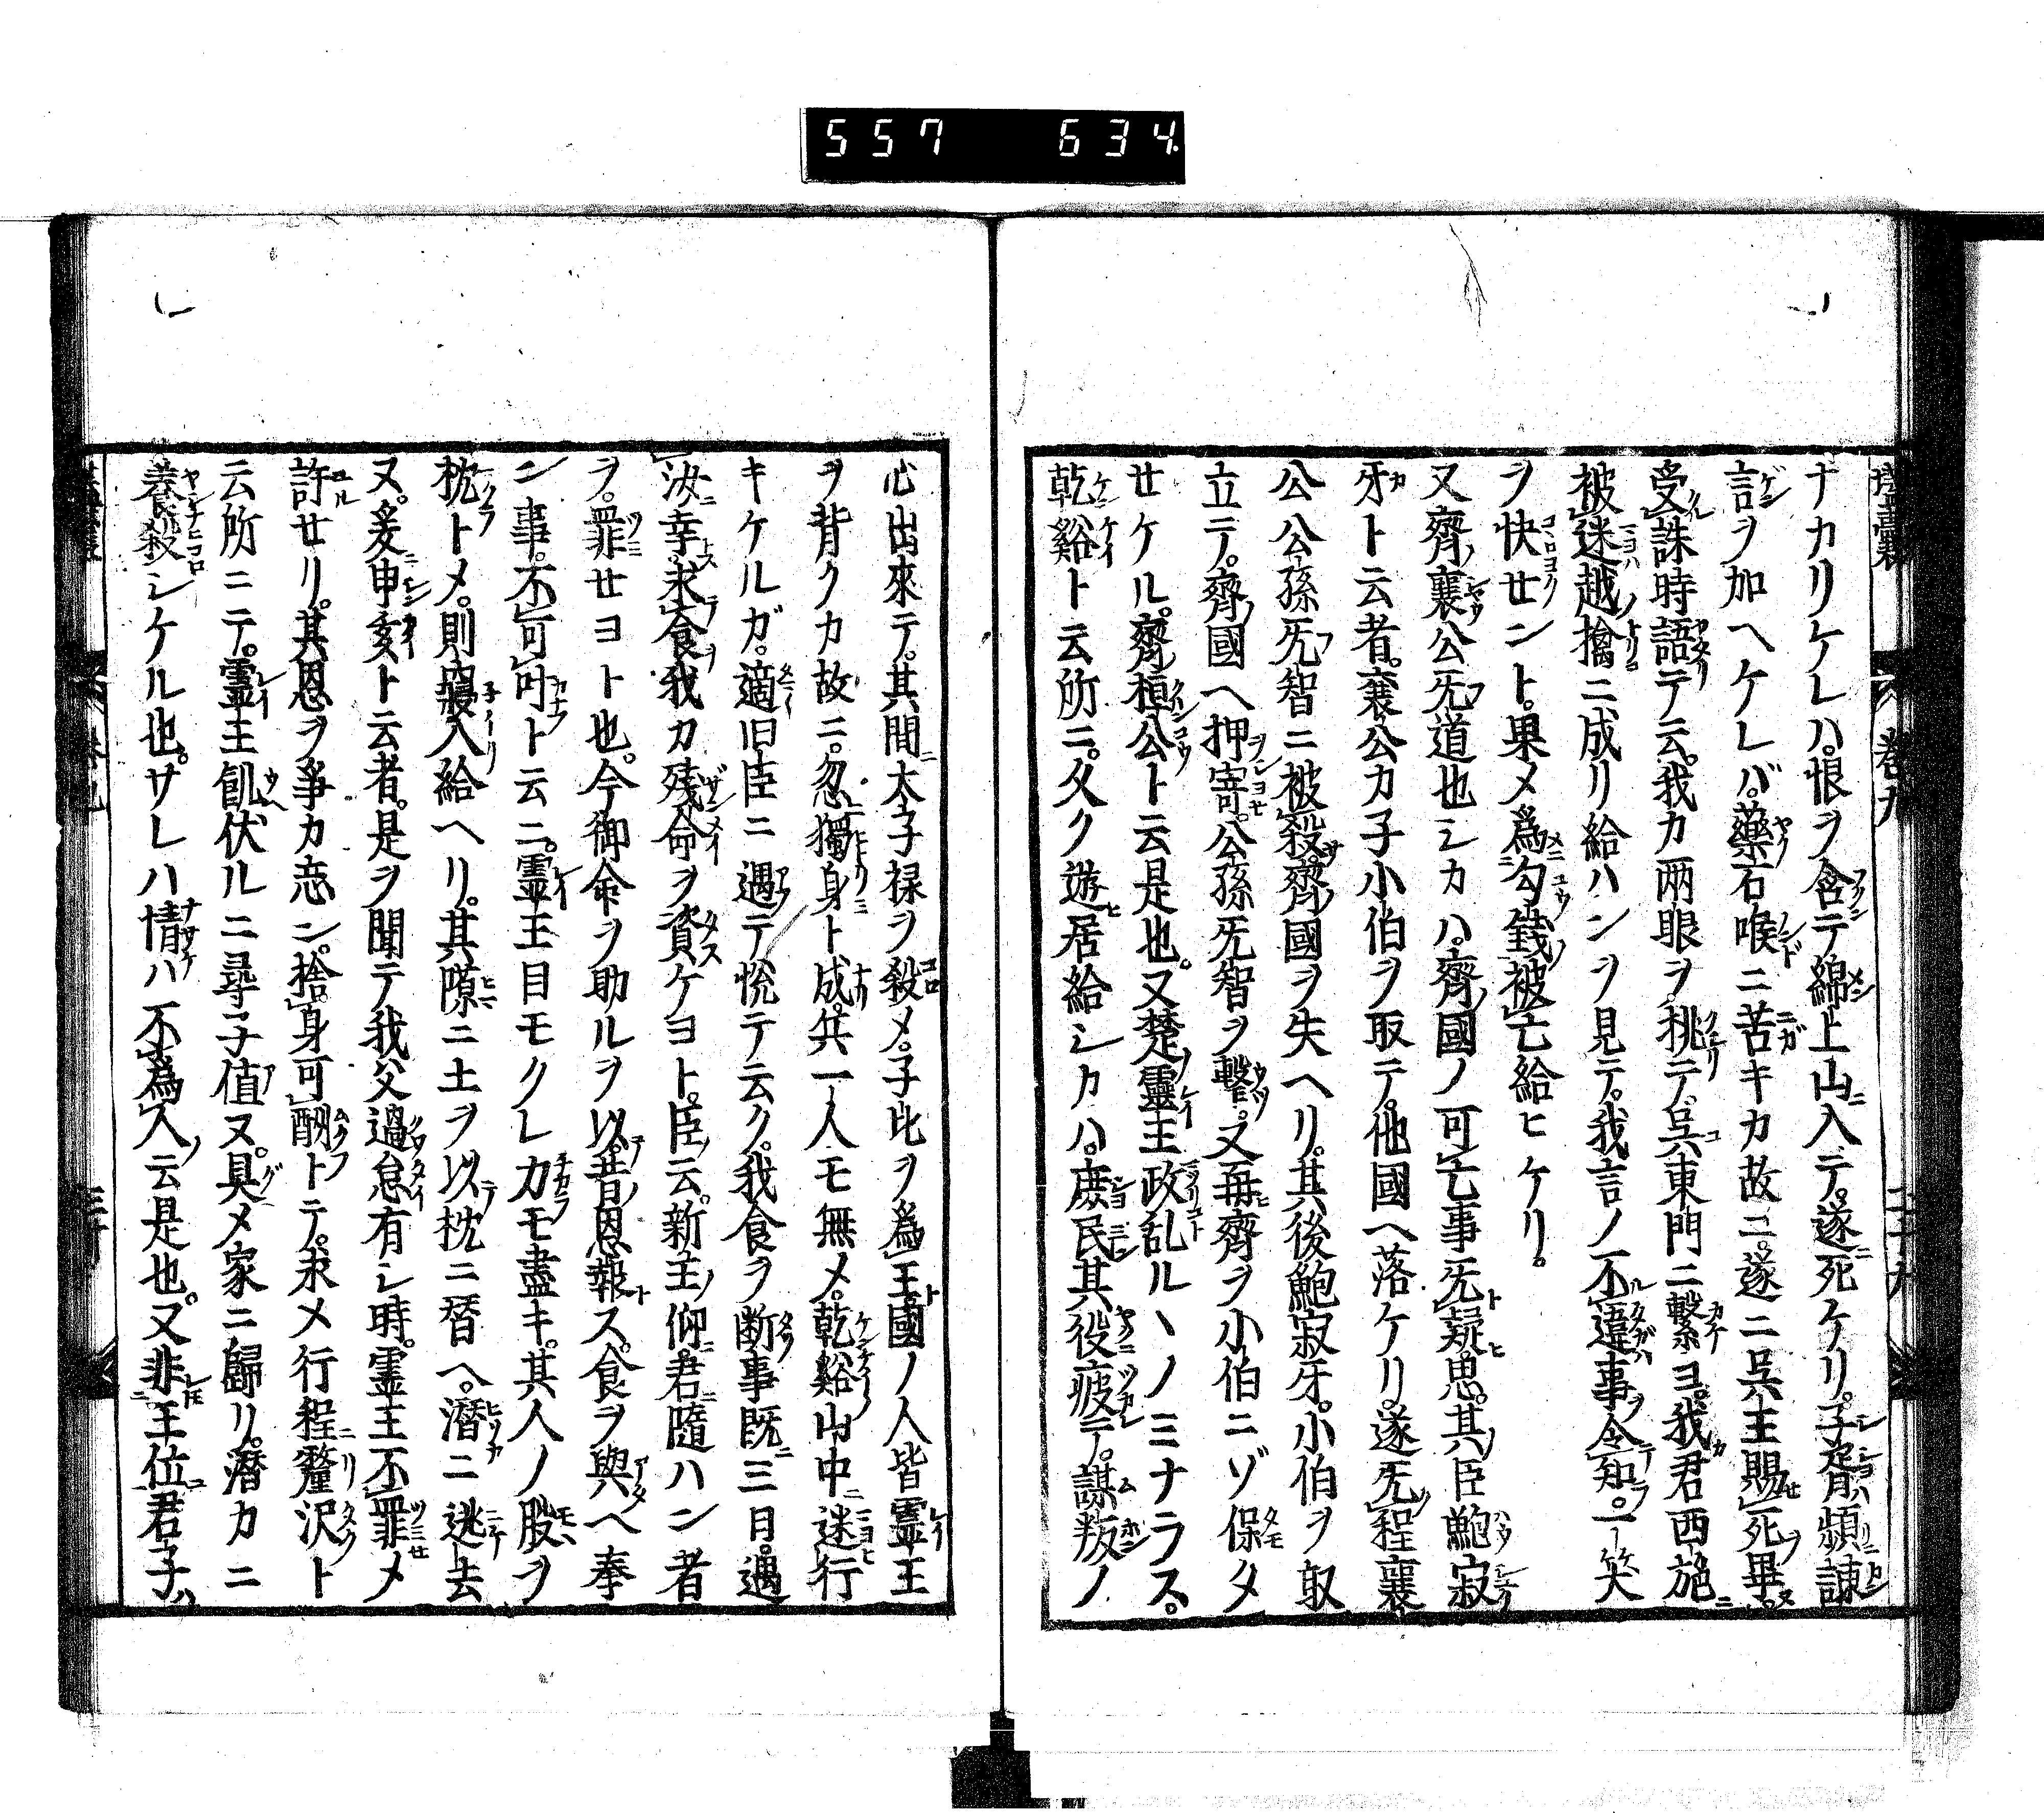 557 634
壒囊 卷九 二十九
ナカリケレハ。恨ヲ含テ綿上山ニ入テ。遂ニ死ケリ。子胥頻諫
言ヲ加ヘケレバ。藥石喉ニ苦キカ故ニ。遂ニ呉王賜死ヲ畢。
受誅時語テ云。我カ两眼ヲ挑テ。呉東門ニ繫ヨ。我君西施ニ
被迷越ノ擒ニ成リ給ハンヲ見テ。我言ノ不違事ヲ令知。一笑
ヲ快セント。果メ爲勾錢被亡給ヒケリ。
又齊ノ襄公旡道也シカハ。齊ノ國ノ可亡事旡疑思。其ノ臣鮑寂
牙ト云者。襄公カ子小伯ヲ取テ。他國ヘ落ケリ。遂旡程襄
公公孫旡智ニ被殺齊國ヲ失ヘリ。其後鮑寂牙。小伯ヲ取
立テ。齊ノ國ヘ押寄。公孫旡智ヲ擊。又再齊ヲ小伯ニゾ保タ
せケル。齊ノ桓公ト云是也。又楚ノ靈王政乱ルヽノミナラス。
乾谿ト云所ニ。久ク遊居給シカハ。庶民其役疲テ。謀叛ノ
心出來テ。其間ニ太子禄ヲ殺メ。子比ヲ爲王ト國ノ人皆霊王
ヲ背クカ故ニ。忽ニ獨身ト成。共一人モ無メ。乾谿山中ニ迷行
キケルガ。適旧臣ニ遇テ悦テ云ク。我食ヲ断事既ニ三日。遇
汝ニ幸ヒ求食ヲ我カ残命ヲ資ケヨト。臣ノ云。新主ノ仰ニ君ニ隨ハン者
ヲ。罪せヨト也。今御命ヲ助ルヲ以テ。昔ノ恩報トス。食ヲ與ヘ奉
ン事。不可叶ト云ニ。霊王目モクレ力モ盡キ。其人ノ股ヲ
枕トメ。則寢入給ヘリ。其隙ニ土ヲ以テ枕ニ替ヘ。潛ニ逃去
ヌ。爰ニ申亥ト云者。是ヲ聞テ我父過怠有シ時。霊王不罪メ
許せリ。其恩ヲ爭カ忘ン。捨身可酬トテ。求メ行程ニ釐沢ト
云所ニテ。霊王飢伏ルニ尋子値ヌ。具メ家ニ歸リ。潛カニ
養殺シケル也。サレハ情ハ不爲人ノ云是也。又非王位ニ君子ハ